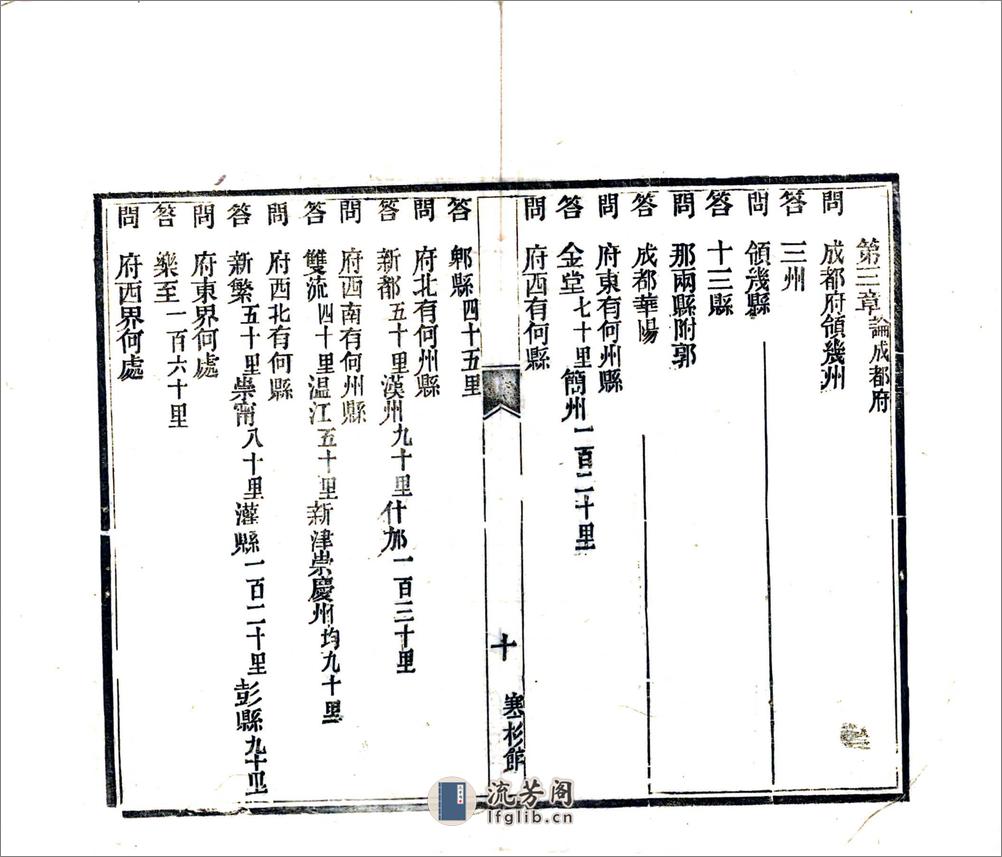 第三章論成都府
問 成都府領幾州
答 三州
問 領幾縣
答 十三縣
問 那兩縣附郭
答 成都華陽
問 府東有何州縣
答 金堂七十里簡州一百二十里
問 府西有何縣
十 寒杉館
答 郫縣四十五里
問 府北有何州縣
答 新都五十里漢州九十里什邡一百三十里
問 府西南有何州縣
答 雙流四十里温江五十里新津崇慶州均九十里
問 府西北有何縣
答 新繁五十里崇甯八十里灌縣一百二十里彭縣九十里
問 府東界何處
答 樂至一百六十里
問 府西界何處
流芳阁
lfglib.cn